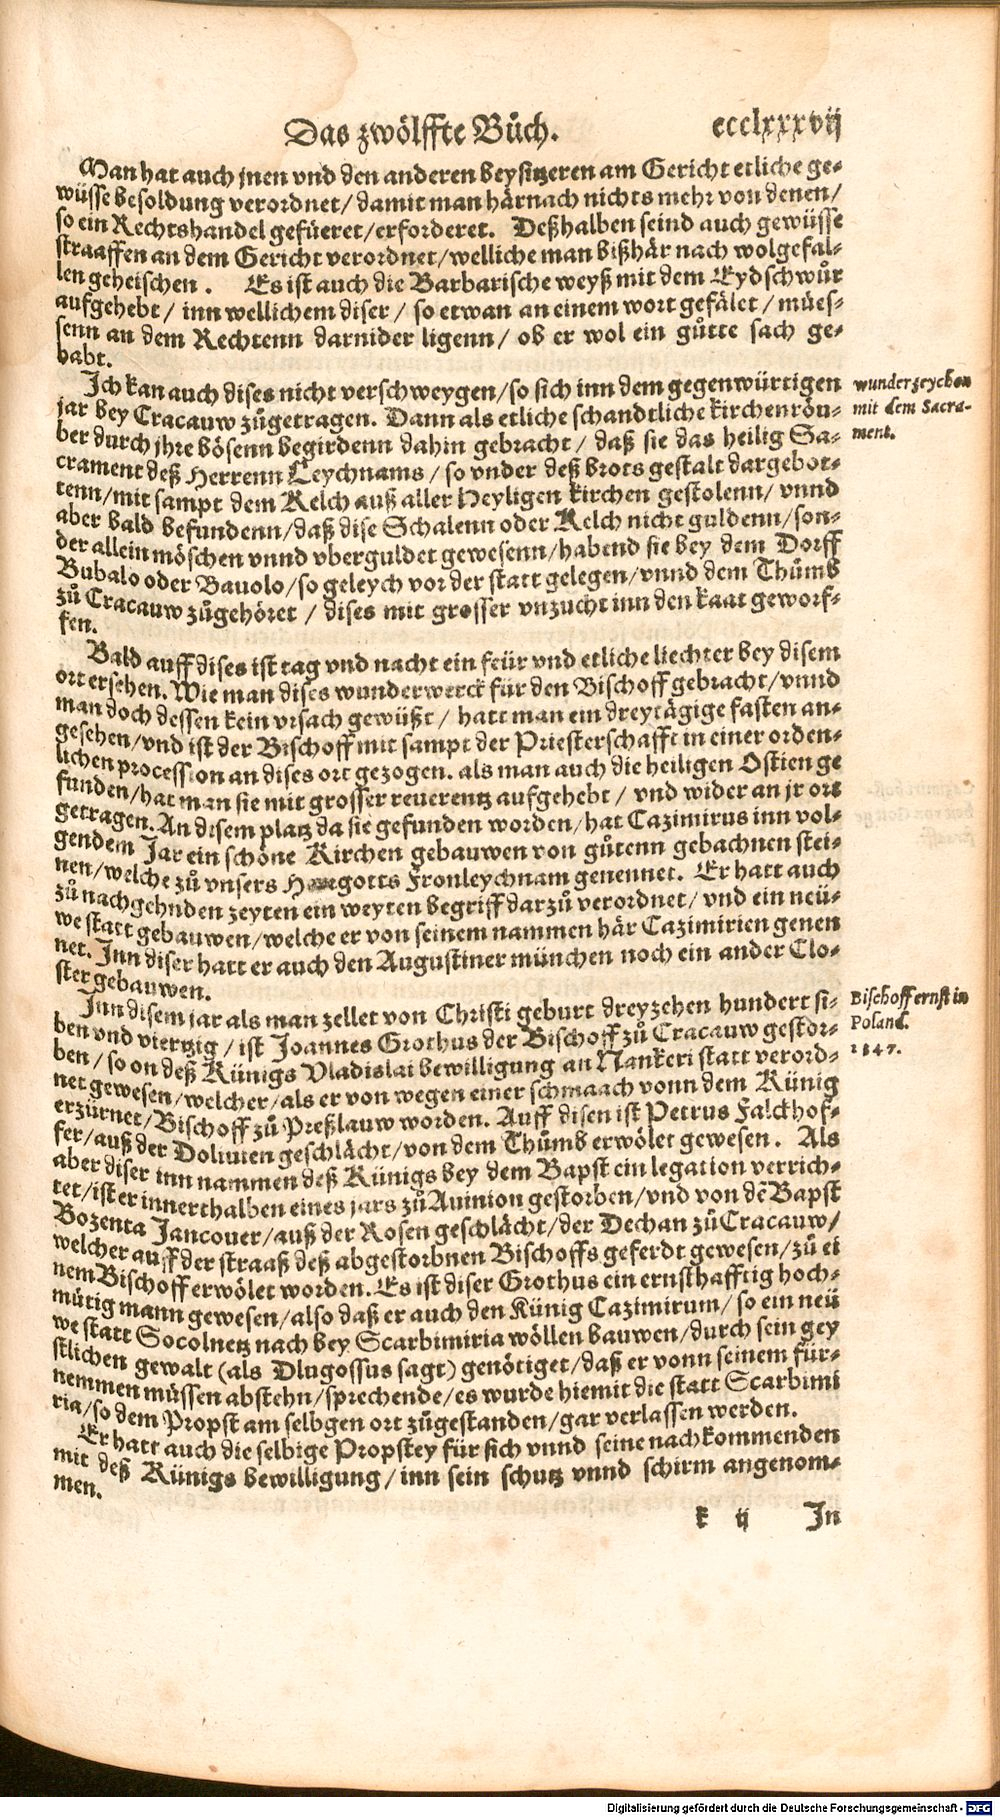 Das zwölffte Bůch. ccclxxxvij
Man hat auch jnen vnd den anderen beysitzeren am Gericht etliche ge-
wüsse besoldung verordnet/ damit man härnach nichts mehr von denen/
so ein Rechtshandel gefüeret/erforderet. Deßhalben seind auch gewüsse
straaffen an dem Gericht verordnet/welliche man bißhär nach wolgefal-
len geheischen. Es ist auch die Barbarische weyß mit dem Eydschwůr
aufgehebt/ inn wellichem diser/ so etwan an einem wort gefälet/ mües-
senn an dem Rechtenn darnider ligenn/ ob er wol ein gůtte sach ge-
habt.
Ich kan auch dises nicht verschweygen/so sich inn dem gegenwürtigen
jar bey Cracauw zůgetragen. Dann als etliche schandtliche kirchenröu-
ber durch jhre bösenn begirdenn dahin gebracht/ daß sie das heilig Sa-
crament deß Herrenn Leychnams/ so vnder deß brots gestalt dargebot-
tenn/mit sampt dem Kelch auß aller Heyligen kirchen gestolenn/ vnnd
aber bald befundenn/daß dise Schalenn oder Kelch nicht guldenn/son-
der allein möschen vnnd vberguldet gewesenn/habend sie bey dem Dorff
Bubalo oder Bauolo/so geleych vor der statt gelegen/vnnd dem Thůmb
zů Cracauw zůgehöret/ dises mit grosser vnzucht inn den kaat geworf-
fen.
wunderzeychen
mit dem Sacra-
ment.
Bald auff dises ist tag vnd nacht ein feür vnd etliche liechter bey disem
ort ersehen. Wie man dises wunderwerck für den Bischoff gebracht/vnnd
man doch dessen kein vrsach gewüßt/ hatt man ein dreytägige fasten an-
gesehen/vnd ist der Bischoff mit sampt der Priesterschafft in einer orden-
lichen procession an dises ort gezogen. als man auch die heiligen Ostien ge
funden/hat man sie mit grosser reuerentz aufgehebt/ vnd wider an jr ort
getragen. An disem platz da sie gefunden worden/hat Cazimirus inn vol-
gendem Jar ein schöne Kirchen gebauwen von gůtenn gebachnen stei-
nen/welche zů vnsers Herrgotts Fronleychnam genennet. Er hatt auch
zů nachgehnden zeyten ein weyten begriff darzů verordnet/ vnd ein neü-
we statt gebauwen/welche er von seinem nammen här Cazimirien genen
net. Inn diser hatt er auch den Augustiner münchen noch ein ander Clo-
ster gebauwen.
Inn disem jar als man zellet von Christi geburt dreyzehen hundert si-
ben vnd viertzig/ ist Joannes Grothus der Bischoff zů Cracauw gestor-
ben/ so on deß Künigs Vladislai bewilligung an Nankeri statt verord-
net gewesen/welcher/als er von wegen einer schmaach vonn dem Künig
erzürnet/Bischoff zů Preßlauw worden. Auff disen ist Petrus Falckhof-
fer/auß der Doliuien geschlächt/von dem Thůmb erwölet gewesen. Als
aber diser inn nammen deß Künigs bey dem Bapst ein legation verrich-
tet/ist er innerthalben eines jars zů Auinion gestorben/vnd von dē Bapst
Bozenta Jancouer/auß der Rosen geschlächt/der Dechan zů Cracauw/
welcher auff der straaß deß abgestorbnen Bischoffs geferdt gewesen/zů ei
nem Bischoff erwölet worden. Es ist diser Grothus ein ernsthafftig hoch-
mütig mann gewesen/also daß er auch den Künig Cazimirum/ so ein neü
we statt Socolnetz nach bey Scarbimiria wöllen bauwen/durch sein gey
stlichen gewalt (als Dlugossus sagt) genötiget/daß er vonn seinem für-
nemmen müssen abstehn/sprechende/es wurde hiemit die statt Scarbimi
ria/so dem Propst am selbgen ort zůgestanden/gar verlassen werden.
Bischoff ernst in
Poland.
1347.
Er hatt auch die selbige Propstey für sich vnnd seine nachkommenden
mit deß Künigs bewilligung/inn sein schutz vnnd schirm angenom-
men.
k ij In
Digitalisierung gefördert durch die Deutsche Forschungsgemeinschaft - DFG